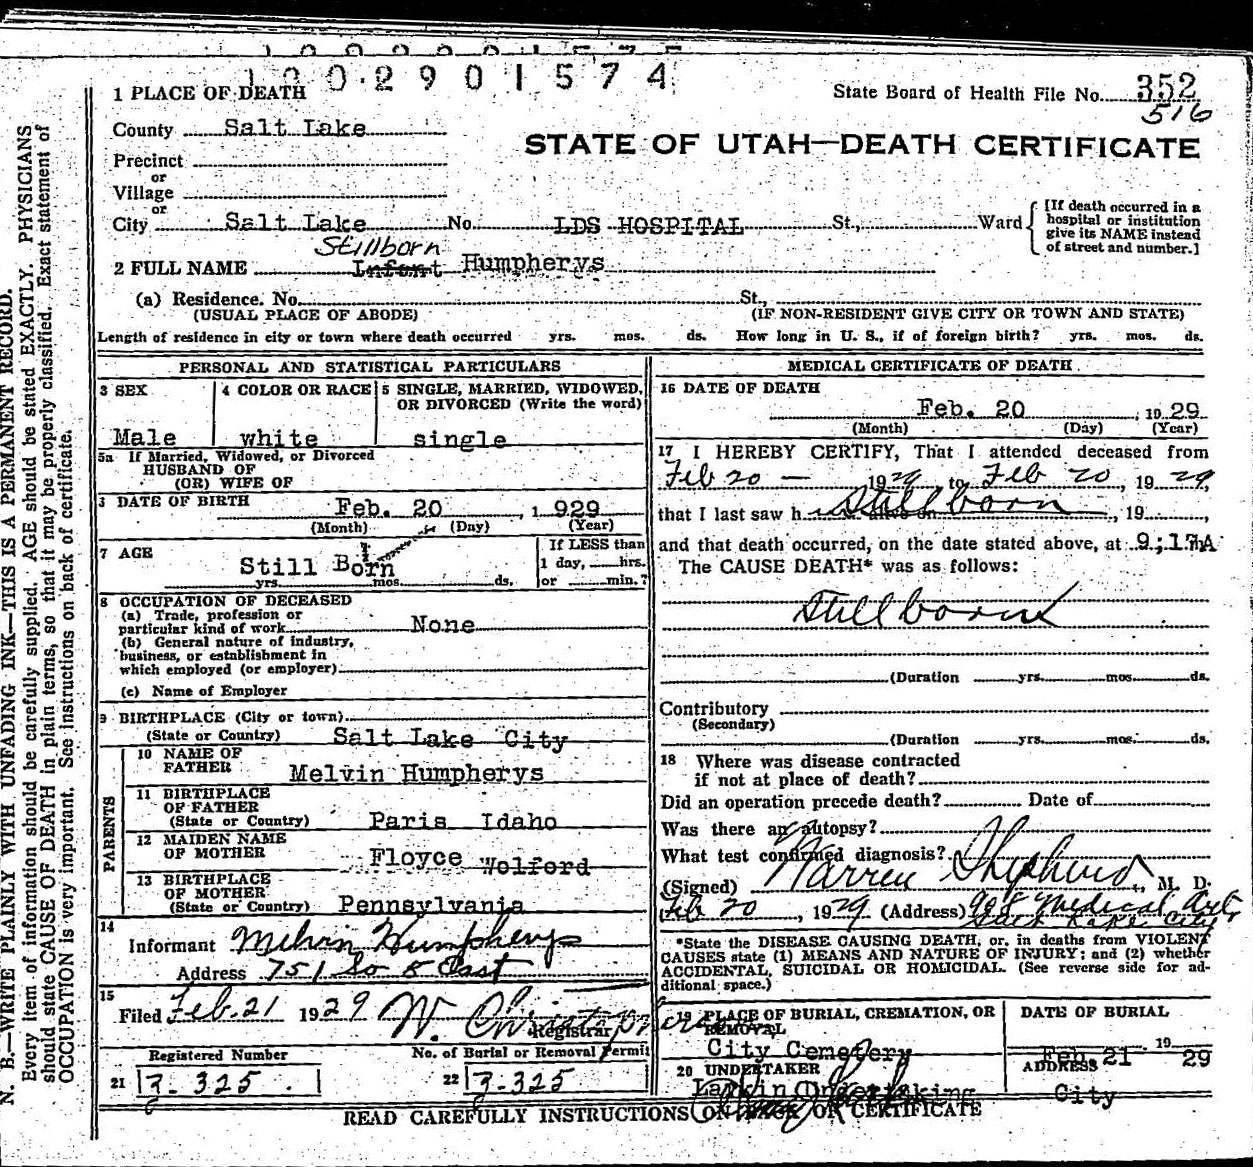 1 0 0 2 9 0 1 5 7 4
State Board of Health File No. 352
516
1 PLACE OF DEATH
County Salt Lake
STATE OF UTAH—DEATH CERTIFICATE
Precinct
or
Village
or
City Salt Lake No. LDS HOSPITAL St., Ward
[If death occurred in a
hospital or institution
give its NAME instead
of street and number.]
Stillborn
2 FULL NAME Infant Humpherys
(a) Residence. No. St.,
(USUAL PLACE OF ABODE) (IF NON-RESIDENT GIVE CITY OR TOWN AND STATE)
Length of residence in city or town where death occurred yrs. mos. ds. How long in U. S., if of foreign birth? yrs. mos. ds.
PERSONAL AND STATISTICAL PARTICULARS
3 SEX
Male
4 COLOR OR RACE
white
5 SINGLE, MARRIED, WIDOWED,
OR DIVORCED (Write the word)
single
5a If Married, Widowed, or Divorced
HUSBAND OF
(OR) WIFE OF
3 DATE OF BIRTH
Feb. 20, 1929
(Month) (Day) (Year)
7 AGE
Still Born
yrs. mos. ds.
If LESS than
1 day, hrs.
or min.?
8 OCCUPATION OF DECEASED
(a) Trade, profession or
particular kind of work None
(b) General nature of industry,
business, or establishment in
which employed (or employer)
(c) Name of Employer
9 BIRTHPLACE (City or town)
(State or Country) Salt Lake City
PARENTS
10 NAME OF
FATHER Melvin Humpherys
11 BIRTHPLACE
OF FATHER
(State or Country) Paris Idaho
12 MAIDEN NAME
OF MOTHER Floyce Wolford
13 BIRTHPLACE
OF MOTHER
(State or Country) Pennsylvania
14
Informant Melvin Humpherys
Address 751 So 8 East
15
Filed Feb. 21 1929 W. Christopherson
Registrar
Registered Number No. of Burial or Removal Permit
21 3-325 22 3-325
MEDICAL CERTIFICATE OF DEATH
16 DATE OF DEATH
Feb. 20, 1929
(Month) (Day) (Year)
17 I HEREBY CERTIFY, That I attended deceased from
Feb 20 — 1929, to Feb 20, 1929,
that I last saw h alive on Stillborn, 19,
and that death occurred, on the date stated above, at 9;17A
The CAUSE DEATH* was as follows:
Stillborn
(Duration yrs. mos. ds.
Contributory
(Secondary)
(Duration yrs. mos. ds.
18 Where was disease contracted
if not at place of death?
Did an operation precede death? Date of
Was there an autopsy?
What test confirmed diagnosis?
(Signed) Warren Shepherd, M. D.
Feb 20, 1929 (Address) 908 Medical Arts
Salt Lake City
*State the DISEASE CAUSING DEATH, or, in deaths from VIOLENT
CAUSES state (1) MEANS AND NATURE OF INJURY; and (2) whether
ACCIDENTAL, SUICIDAL OR HOMICIDAL. (See reverse side for ad-
ditional space.)
19 PLACE OF BURIAL, CREMATION, OR
REMOVAL
City Cemetery
DATE OF BURIAL
Feb. 21 1929
20 UNDERTAKER
Larkin Undertaking
ADDRESS
City
READ CAREFULLY INSTRUCTIONS ON BACK OF CERTIFICATE
N. B.—WRITE PLAINLY WITH UNFADING INK—THIS IS A PERMANENT RECORD.
Every item of information should be carefully supplied. AGE should be stated EXACTLY. PHYSICIANS
should state CAUSE OF DEATH in plain terms, so that it may be properly classified. Exact statement of
OCCUPATION is very important. See instructions on back of certificate.